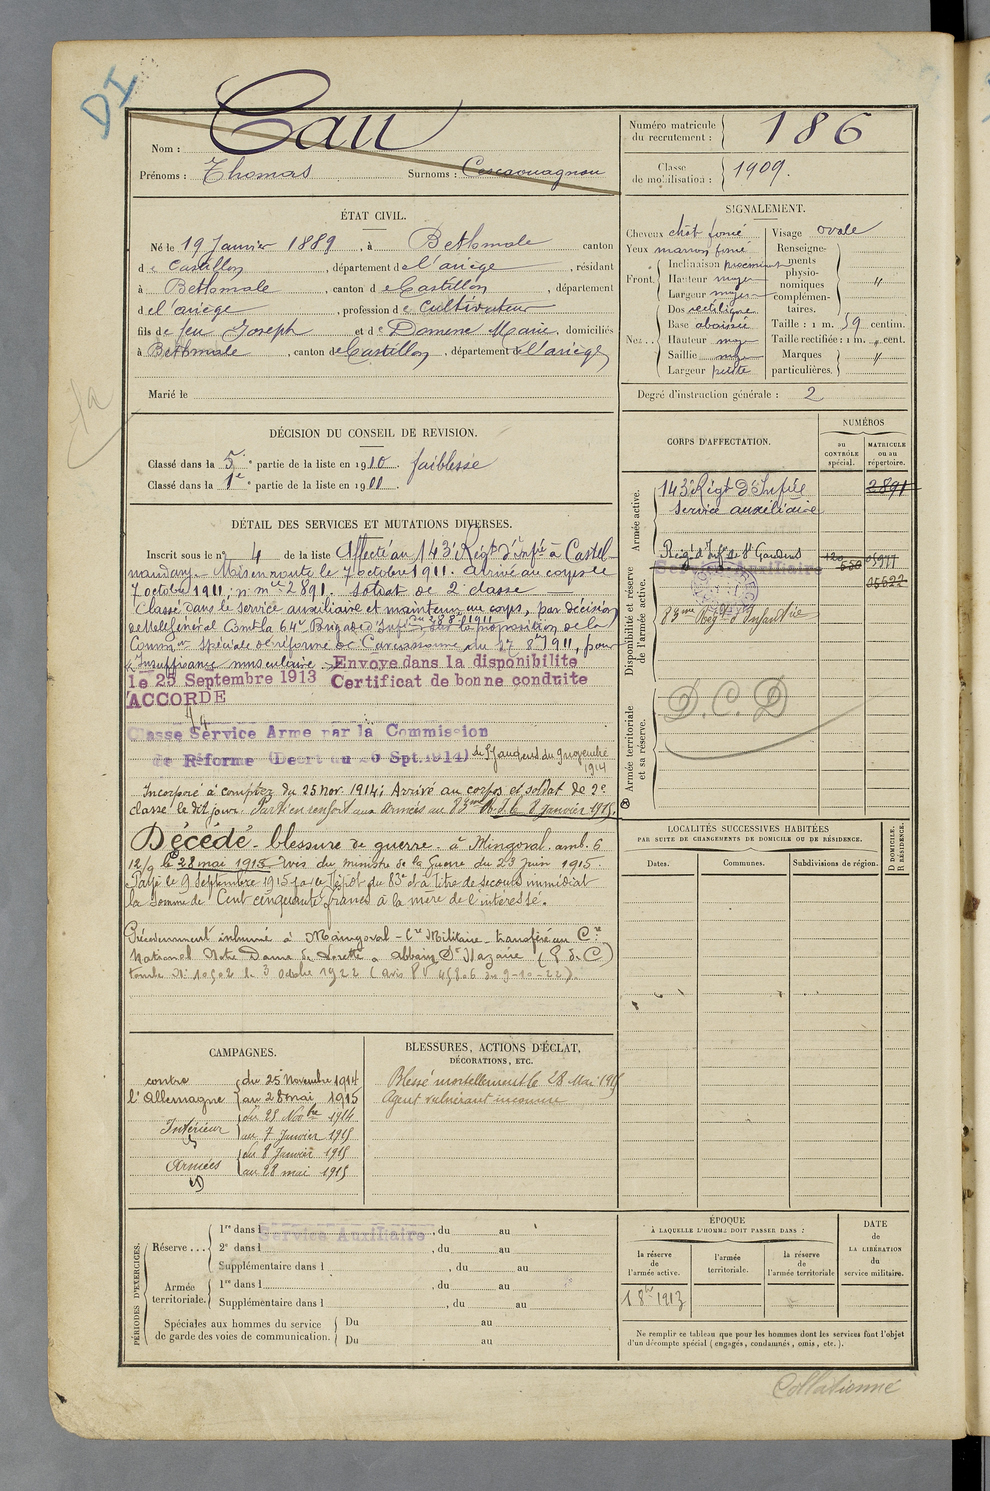 DI
Nom : Cau
Prénoms : Thomas Surnoms :
Numéro matricule du recrutement : 186
Classe de mobilisation : 1909.
ÉTAT CIVIL.
Né le 19 Janvier 1889, à Bethmale canton
de Castillon, département de l'ariège, résidant
à Bethmale, canton de Castillon, département
de l'ariège, profession de Cultivateur
fils de feu Joseph et de Domenc Marie, domiciliés
à Bethmale, canton de Castillon, département de l'ariège
Marié le
SIGNALEMENT.
Cheveux chat foncé
Yeux marron foncé
Front. Inclinaison proéminent
Hauteur moyen
Largeur moyen
Nez. Dos rectiligne
Base abaissée
Hauteur moy
Saillie moy
Largeur petite
Visage ovale
Renseignements physionomiques complémentaires. "
Taille : 1 m. 59 centim.
Taille rectifiée : 1 m. " cent.
Marques particulières. "
Degré d'instruction générale : 2
DÉCISION DU CONSEIL DE REVISION.
Classé dans la 5e partie de la liste en 1910. faiblesse
Classé dans la 1e partie de la liste en 1911.
DÉTAIL DES SERVICES ET MUTATIONS DIVERSES.
Inscrit sous le n° 4 de la liste Affecté au 143e Régt d'Infie à Castel-
naudary. Mis en route le 7 octobre 1911. arrivé au corps le
7 octobre 1911; n° mle 2891. soldat de 2 classe
Classé dans le service auxiliaire et maintenu au corps, par décision
de M le Général Comt la 64e Brigade d'Infie du 28-8-1911 sur la proposition de la
Comm on spéciale de réforme de Carcassonne du 27 8bre 1911, pour
"Insuffisance musculaire." Envoye dans la disponibilite
le 25 Septembre 1913 Certificat de bonne conduite
ACCORDE
Classe Service Arme par la Commission
de Réforme (Decrt du 20 Spt.1914) de St Gaudens du 9 novembre
1914
Incorporé à compter du 25 nov. 1914; Arrivé au corps et soldat de 2e
classe le dit jour. Parti en renfort aux armées au 83me R.I. le 8 janvier 1915.
Décédé - blessure de guerre - à Mingoval. amb. 6
12/9 le 28 mai 1915 avis du ministre de la Guerre du 23 juin 1915.
Payé le 9 Septembre 1915 par le Dépôt du 83e à titre de secours immédiat
la somme de Cent cinquante francs à la mère de l'intéressé.
Précédemment inhumé à Maingoval - Cre Militaire - transféré au Cre
National Notre Dame de Lorette à Ablain St Nazaire (P. de C)
tombe N° 10502 le 3 octobre 1922 (avis PV 45806 du 9-10-22).
CORPS D'AFFECTATION.
NUMÉROS
au CONTRÔLE spécial.
MATRICULE ou au répertoire.
Armée active.
143e Régt d'Infie 2891
Service auxiliaire
Disponibilité et réserve de l'armée active.
Régt d'Inf. de St Gaudens
Service Auxiliaire
83me Rég t d'Infanterie
Armée territoriale et sa réserve.
D.C.D
LOCALITÉS SUCCESSIVES HABITÉES
PAR SUITE DE CHANGEMENTS DE DOMICILE OU DE RÉSIDENCE.
Dates. Communes. Subdivisions de région.
D DOMICILE. R RÉSIDENCE.
CAMPAGNES.
contre l'Allemagne du 25 Novembre 1914
au 28 mai 1915
Intérieur du 25 Novbre 1914
au 7 Janvier 1915
Armées du 8 Janvier 1915
au 28 mai 1915
BLESSURES, ACTIONS D'ÉCLAT,
DÉCORATIONS, ETC.
Blessé mortellement le 28 Mai 1915
Agent vulnérant inconnu
PÉRIODES D'EXERCICES.
Réserve... 1re dans l Service Auxiliaire, du au
2e dans l, du au
Supplémentaire dans l, du au
Armée territoriale. 1re dans l, du au
Supplémentaire dans l, du au
Spéciales aux hommes du service de garde des voies de communication. Du au
Du au
ÉPOQUE
À LAQUELLE L'HOMME DOIT PASSER DANS :
la réserve de l'armée active.
l'armée territoriale.
la réserve de l'armée territoriale
DATE DE LA LIBÉRATION du service militaire.
1 8bre 1913
Ne remplir ce tableau que pour les hommes dont les services font l'objet
d'un décompte spécial (engagés, condamnés, omis, etc.).
Collationné